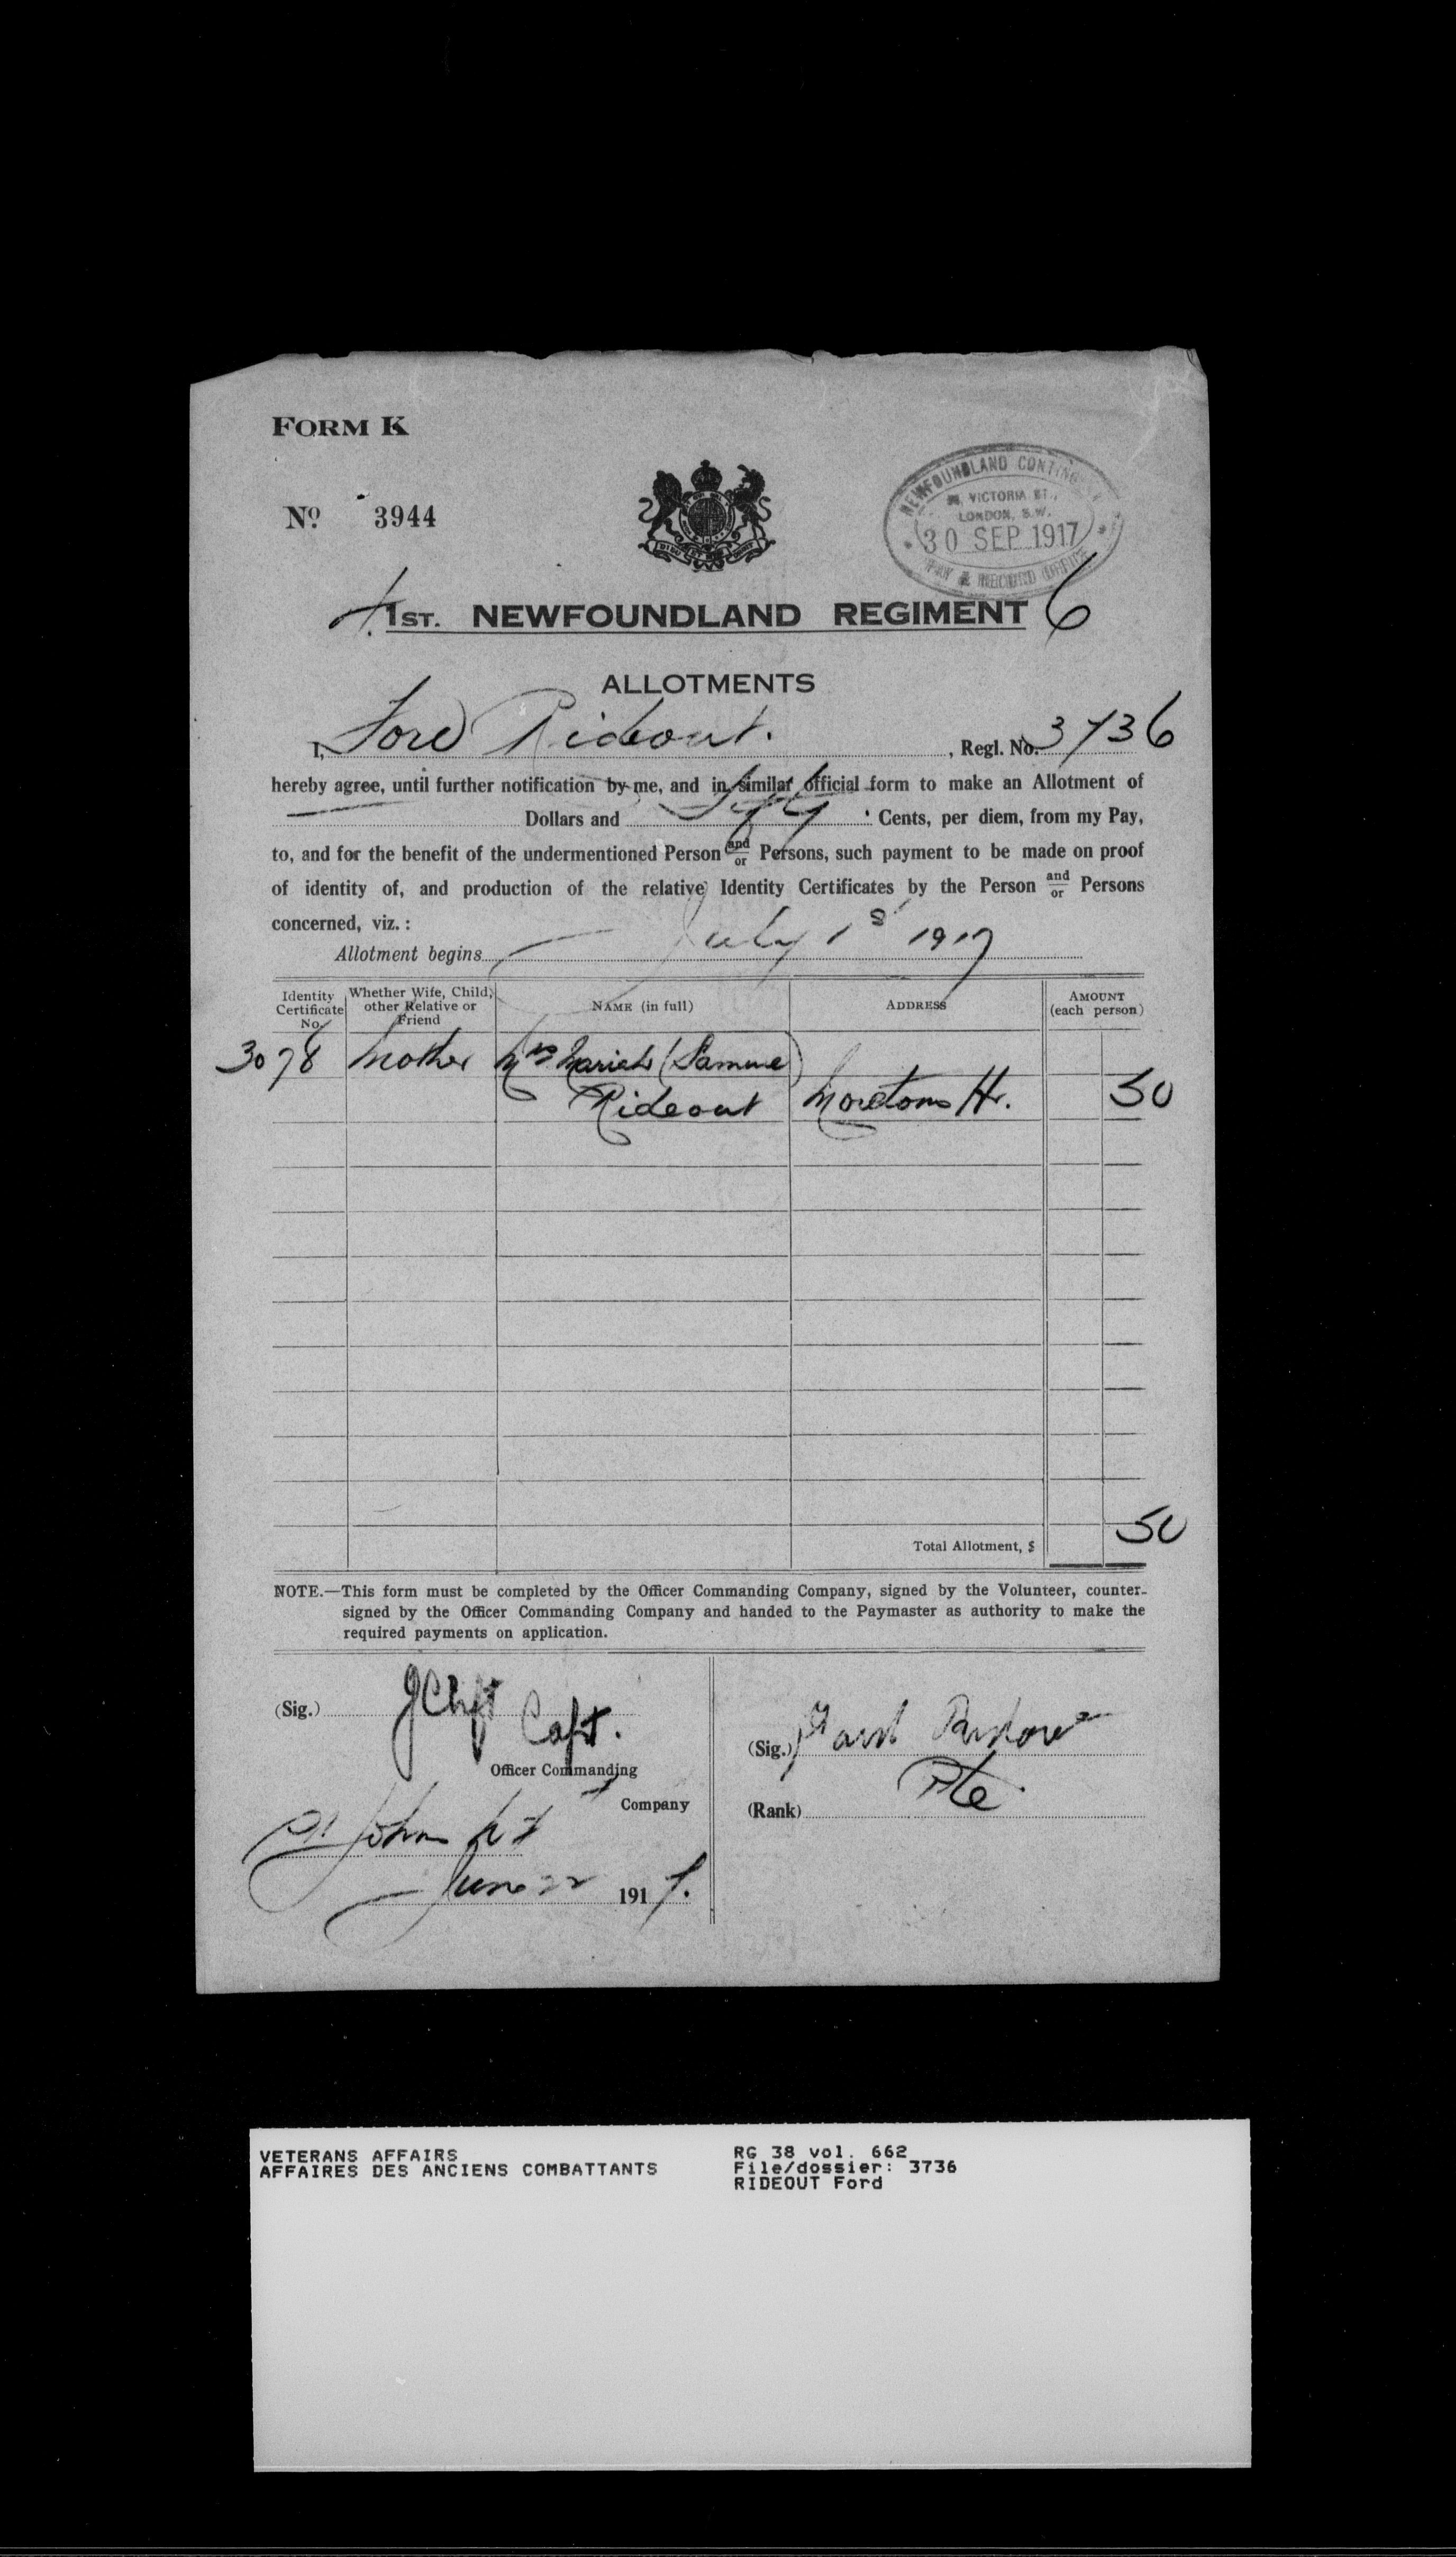 FORM K
No. 3944
NEWFOUNDLAND CONTINGENT
VICTORIA ST.,
LONDON, S.W.
30 SEP 1917
PAY & RECORD OFFICE
1ST. NEWFOUNDLAND REGIMENT 6
ALLOTMENTS
I, Ford Rideout. , Regl. No. 3736
hereby agree, until further notification by me, and in similar official form to make an Allotment of
— Dollars and Fifty Cents, per diem, from my Pay,
to, and for the benefit of the undermentioned Person and/or Persons, such payment to be made on proof
of identity of, and production of the relative Identity Certificates by the Person and/or Persons
concerned, viz. :
Allotment begins July 1s 1917
Identity Certificate No. Whether Wife, Child, other Relative or Friend NAME (in full) ADDRESS AMOUNT (each person)
3078 Mother Mrs Mariah (Samuel)
Rideout Moretons Hr. 50
Total Allotment, $ 50
NOTE.—This form must be completed by the Officer Commanding Company, signed by the Volunteer, counter-
signed by the Officer Commanding Company and handed to the Paymaster as authority to make the
required payments on application.
(Sig.) J Clift Capt.
Officer Commanding
Company
St Johns Nf
June 22 1917.
(Sig.) Ford Rideout
(Rank) Pte.
VETERANS AFFAIRS
AFFAIRES DES ANCIENS COMBATTANTS
RG 38 vol. 662
File/dossier: 3736
RIDEOUT Ford